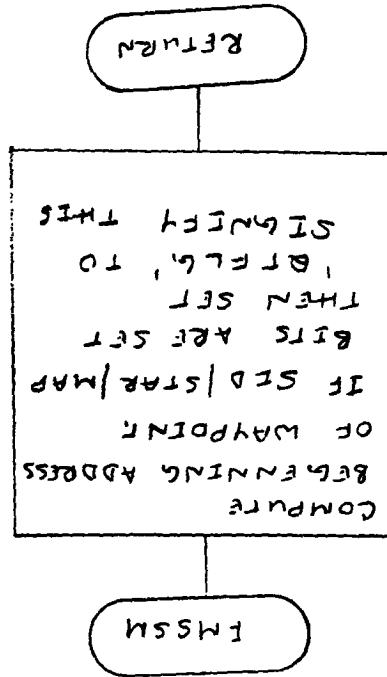 COMPUTE
BEGINNING ADDRESS
OF WAYPOINT
IF SID/STAR/MAP
BITS ARE SET
THEN SET
TO
SIGNIFY THIS
RETURN